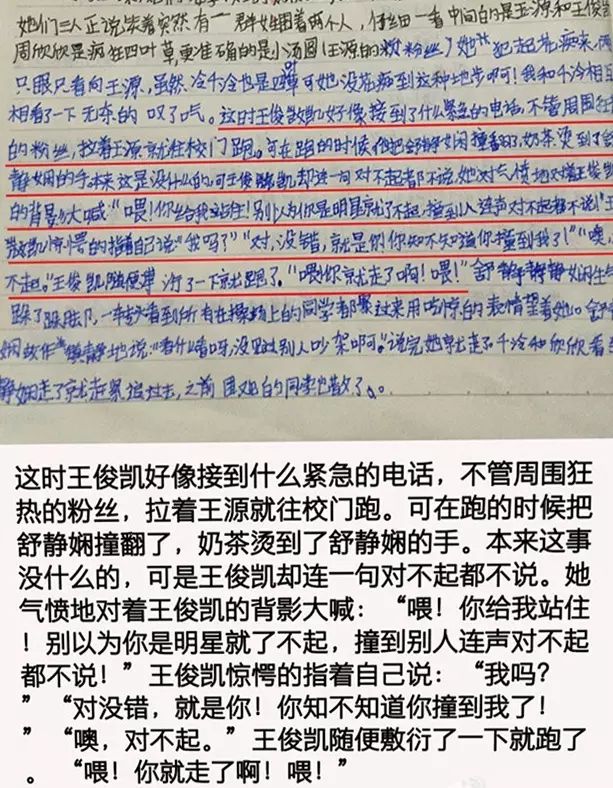 她们三人正说笑着突然有一群女生围着两个人，仔细一看中间的是王源和王俊
周欣欣是疯狂四叶草，更准确的是小汤圆（王源的粉丝）她"犯起花痴来，两
只眼只看向王源，虽然冷千冷也是四叶草可她没花痴到这种地步啊！我和千冷相
相看了一下无奈的叹了气。这时王俊凯好像接到了什么紧急的电话，不管周围
的粉丝，拉着王源就往校门跑。可在跑的时候把舒静娴撞翻了，奶茶烫到了舒
静娴的手。本来这是没什么的，可王俊凯却连一句对不起都不说，她对气愤地对着王俊凯
的背影大喊："喂！你给我站住！别以为你是明星就了不起，撞到人连声对不起都不说！"王
俊凯惊愕的指着自己说"我吗？""对，没错，就是你！你知不知道你撞到我了！""噢，
不起。"王俊凯随便 了一下就跑了。"喂！你就走了啊！喂！"舒静娴生
跺了跺脚，一转 看到所有在操场上的同学都 过来用吃惊的表情望着她。舒
娴故作镇静地说："看什么看呀，没见过别人吵架啊。"说完她就走了千冷和欣欣看
静娴走了就赶紧追过去，之前围观的同学也散了。
这时王俊凯好像接到什么紧急的电话，不管周围狂
热的粉丝，拉着王源就往校门跑。可在跑的时候把
舒静娴撞翻了，奶茶烫到了舒静娴的手。本来这事
没什么的，可是王俊凯却连一句对不起都不说。她
气愤地对着王俊凯的背影大喊：“喂！你给我站住
！别以为你是明星就了不起，撞到别人连声对不起
都不说！”王俊凯惊愕的指着自己说：“我吗？
”“对没错，就是你！你知不知道你撞到我了！
”“噢，对不起。”王俊凯随便敷衍了一下就跑了
。“喂！你就走了啊！喂！”